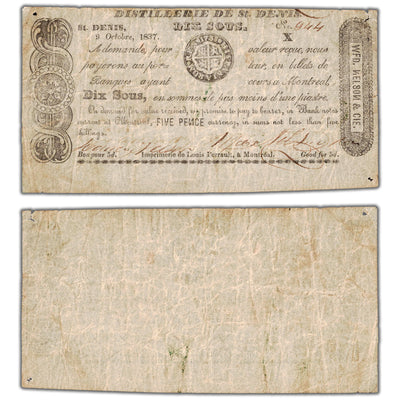 DISTILLERIE DE St. DENIS.
St. DENIS, DIX SOUS. No. 944
9 Octobre, 1837. X
A demande, pour valeur reçue, nous
payerons au por- teur, en billets de
Banques ayant cours à Montréal,
Dix Sous, en sommes pas moins d'une piastre.
On demand for value received, we promise to pay to bearer, in Bank notes
current at Montreal, FIVE PENCE currency, in sums not less than five
shillings.
Bon pour 5d. Imprimerie de Louis Perrault, à Montréal. Good for 5d.
WFD. NELSON & CIE.